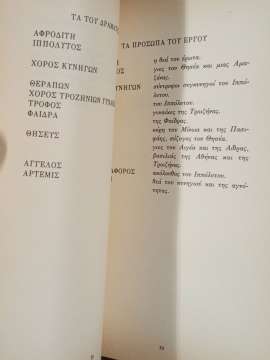 ΤΑ ΤΟΥ ΔΡΑΜΑΤ
ΑΦΡΟΔΙΤΗ
ΙΠΠΟΛΥΤΟΣ
ΧΟΡΟΣ ΚΥΝΗΓΩΝ
ΘΕΡΑΠΩΝ
ΧΟΡΟΣ ΤΡΟΖΗΝΙΩΝ ΓΥΝΑΙ
ΤΡΟΦΟΣ
ΦΑΙΔΡΑ
ΘΗΣΕΥΣ
ΑΓΓΕΛΟΣ
ΑΡΤΕΜΙΣ
ΤΑ ΠΡΟΣΩΠΑ ΤΟΥ ΕΡΓΟΥ
η θεά του έρωτα.
γιος του Θησέα και μιας Αμα-
ζόνας.
σύντροφοι συγκυνηγοί του Ιππό-
λυτου.
του Ιππόλυτου.
γυναίκες της Τροιζήνας.
της Φαίδρας.
κόρη του Μίνωα και της Πασι-
φάης, σύζυγος του Θησέα.
γιος του Αιγέα και της Αίθρας,
βασιλιάς της Αθήνας και της
Τροιζήνας.
ΑΦΟΡΟΣ
ακόλουθος του Ιππόλυτου.
θεά του κυνηγιού και της αγνό-
τητας.